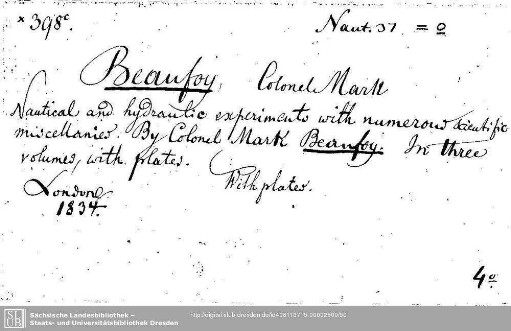 * 398c.
Naut. 37 = o
Beaufoy, Colonel Mark
Nautical and hydraulic experiments with numerous scientific
miscellanies. By Colonel Mark Beaufoy. In three
volumes, with plates.
With plates.
London
1834.
4o.
SLUB
Sächsische Landesbibliothek –
Staats- und Universitätsbibliothek Dresden